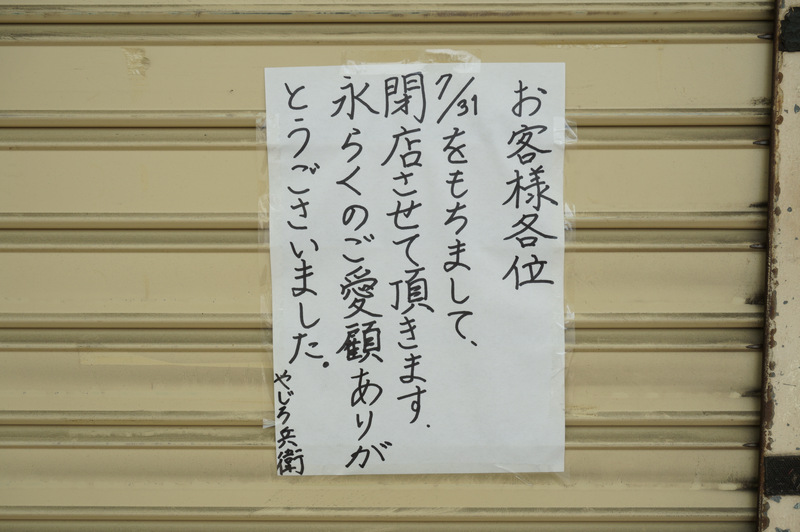 お客様各位
7/31をもちまして、
閉店させて頂きます.
永らくのご愛顧ありが
とうございました。
やじろ兵衛